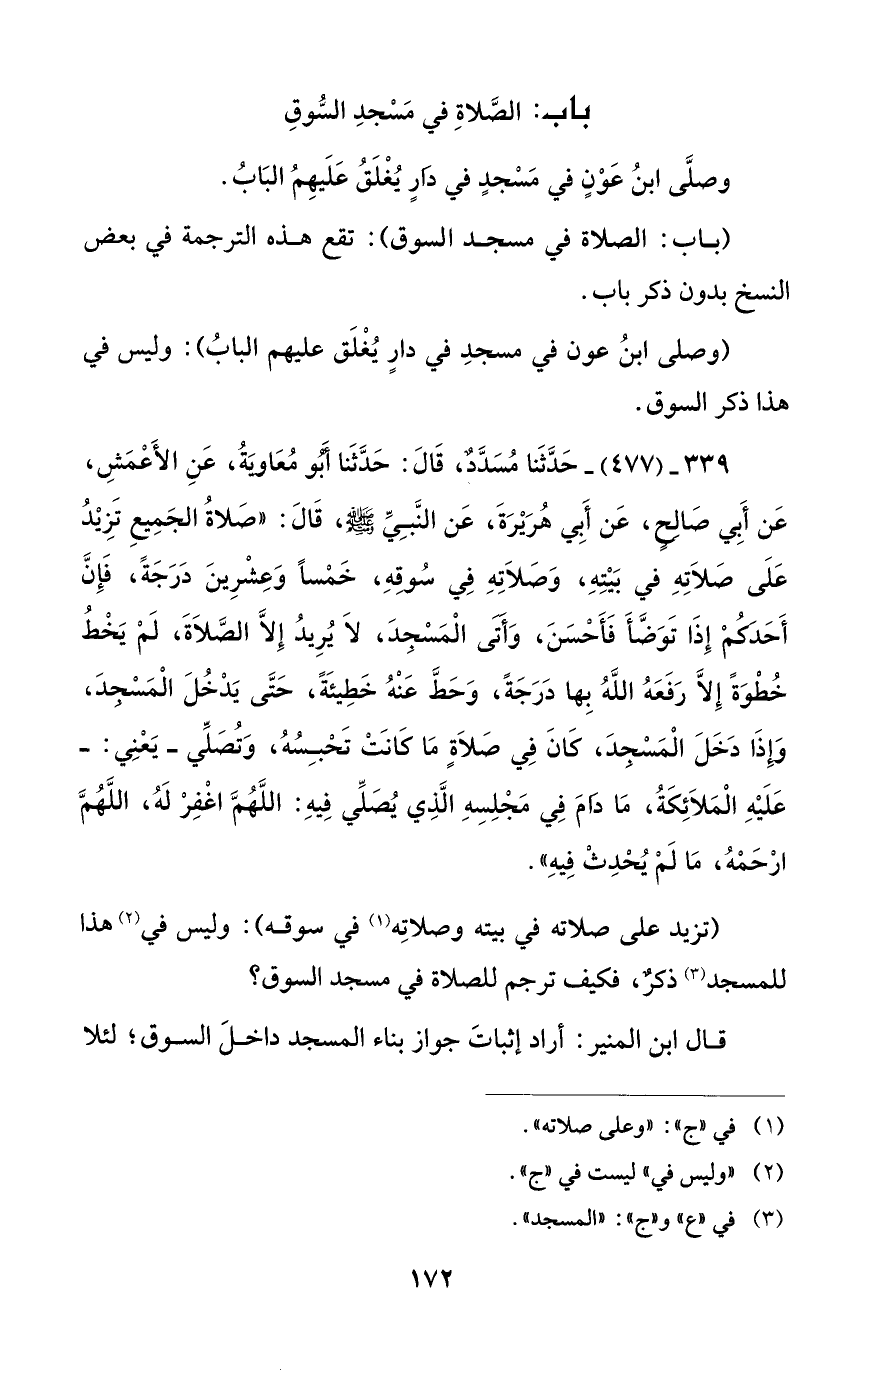 باب: الصَّلاةِ في مَسْجدِ السُّوقِ
وصلَّى ابنُ عَوْنٍ في مَسْجدٍ في دَارٍ يُغْلَقُ عَلَيهِمُ البَابُ.
(باب: الصلاة في مسجد السوق): تقع هذه الترجمة في بعض
النسخ بدون ذكر باب.
(وصلى ابنُ عون في مسجدِ في دارٍ يُغْلَق عليهم البابُ): وليس في
هذا ذكر السوق.
٣٣٩ ـ (٤٧٧) ـ حَدَّثَنا مُسَدَّدٌ، قَالَ: حَدَّثَنا أَبُو مُعَاوِيَةُ، عَنِ الأَعْمَشِ،
عَن أَبِي صَالِحٍ، عَن أَبِي هُرَيْرَةَ، عَن النَّبِيِّ ﷺ، قَالَ: «صَلاةُ الجَمِيعِ تَزِيْدُ
عَلَى صَلاَتِهِ في بَيْتِهِ، وَصَلاَتِهِ فِي سُوقِهِ، خَمْساً وَعِشْرِينَ دَرَجَةً، فَإِنَّ
أَحَدَكُمْ إِذَا تَوَضَّأَ فَأَحْسَنَ، وَأَتَى الْمَسْجِدَ، لاَ يُرِيدُ إِلاَّ الصَّلاَةَ، لَمْ يَخْطُ
خُطْوَةً إِلاَّ رَفَعَهُ اللَّهُ بِها دَرَجَةً، وَحَطَّ عَنْهُ خَطِيئَةً، حَتَّى يَدْخُلَ الْمَسْجِدَ،
وَإِذَا دَخَلَ الْمَسْجِدَ، كَانَ فِي صَلاَةٍ مَا كَانَتْ تَحْبِسُهُ، وَتُصَلِّي ـ يَعْنِي: ـ
عَلَيْهِ الْمَلاَئِكَةُ، مَا دَامَ فِي مَجْلِسِهِ الَّذِي يُصَلِّي فِيهِ: اللَّهُمَّ اغْفِرْ لَهُ، اللَّهُمَّ
ارْحَمْهُ، مَا لَمْ يُحْدِثْ فِيهِ».
(تزيد على صلاته في بيته وصلاتِه(١) في سوقه): وليس في(٢) هذا
للمسجد(٣) ذكرٌ، فكيف ترجم للصلاة في مسجد السوق؟
قال ابن المنير: أراد إثباتَ جواز بناء المسجد داخلَ السوق؛ لئلا
(١) في «ج»: «وعلى صلاته».
(٢) «وليس في» ليست في «ج».
(٣) في «ع» و«ج»: «المسجد».
١٧٢